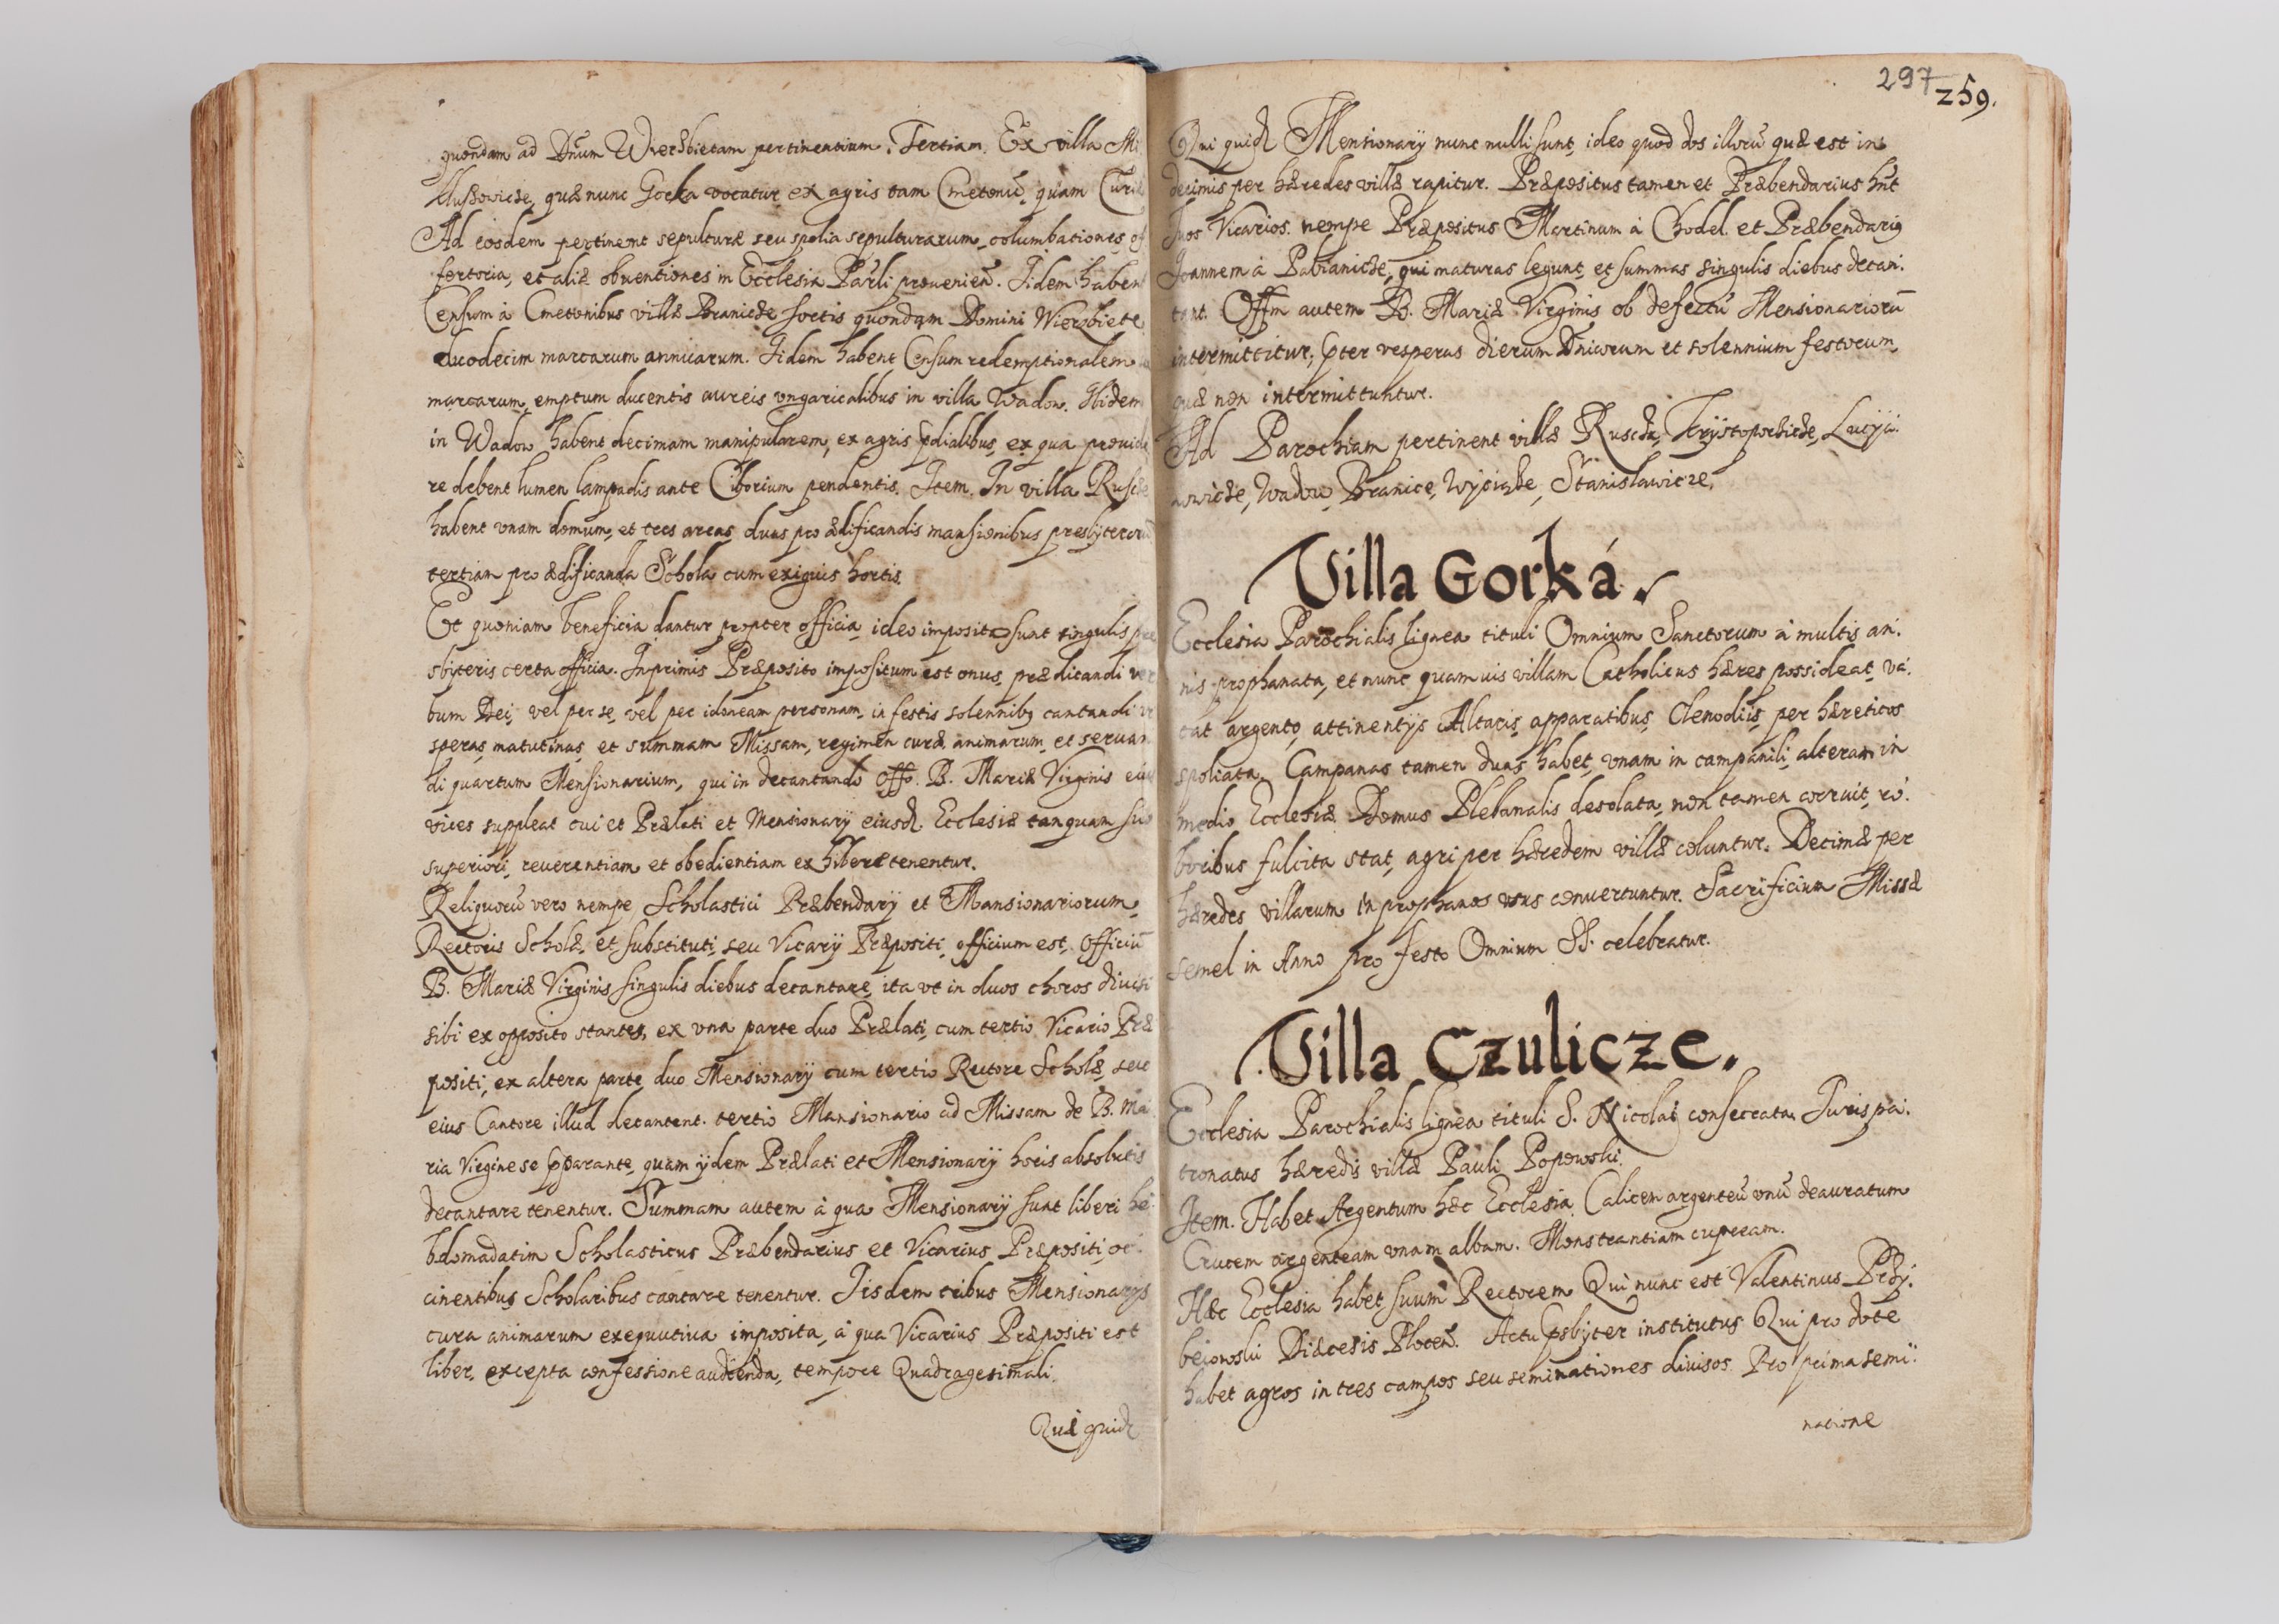 quondam ad Dnum Wierzbietam pertinentium. Tertiam. Ex villa Mi
kluszowicze, quæ nunc Gorka vocatur ex agris tam Cmetonū, quam Curiæ
Ad eosdem pertinent sepulturæ seu spolia sepulturarum, columbationes, of
fertoria, et aliæ obuentiones in Ecclesia Parli prouenien. Iidem haben
Censum à Cmetonibus villæ Branicze sortis quondam Domini Wierzbiete
duodecim marcarum annuarum. Iidem habent Censum redemptionalem
marcarum, emptum ducentis aureis vngaricalibus in villa Wadow. Ibidem
in Wadow habent decimam manipularem, ex agris pdialibus, ex qua prouide
re debent lumen lampadis ante Ciborium pendentis. Item. In villa Rusche
habent vnam domum, et tres areas, duas pro ædificandis mansionibus presbyterorū
tertiam pro ædificanda Schola cum exiguis hortis.
Et quoniam beneficia dantur propter officia, ideo imposita sunt singulis pre
sbyteris certa officia. Inprimis Præposito impositum est onus, prædicandi ver
bum Dei, vel per se, vel per idoneam personam, in festis solennibq cantandi ve
speras, matutinas, et summam Missam, regimen curæ animarum, et seruan
di quartum Mensionarium, qui in decantando Offo. B. Mariæ Virginis eius
vices suppleat cui et Prælati et Mensionarij eiusd. Ecclesiæ tanquam suo
superiori, reuerentiam et obedientiam exhibere tenentur.
Reliquorū vero nempe Scholastici Præbendarij et Mansionariorum,
Rectoris Scholæ, et substituti, seu Vicarij Præpositi, officium est, Officiū
B. Mariæ Virginis singulis diebus decantare, ita vt in duos choros diuisi
sibi ex opposito stantes, ex vna parte duo Prælati, cum tertio Vicario Præ
positi, ex altera parte duo Mensionarij cum tertio Rectore Scholæ, seu
eius Cantore illud decantent. tertio Mansionario ad Missam de B. Ma
ria Virgine se pparante, quam ijdem Prælati et Mensionarij horis absolutis
decantare tenentur. Summam autem à qua Mensionarij sunt liberi he
bdomadatim Scholasticus Præbendarius et Vicarius Præpositi, oc
cinentibus Scholaribus cantare tenentur. Iisdem tribus Mensionarijs
cura animarum exequutiua imposita, à qua Vicarius Præpositi est
liber, excepta confessione audienda, tempore Quadragesimali.
Qui quid
297
259.
Qui quid. Mensionarij nunc nulli sunt, ideo quod dos illorū quæ est in
decimis per hæredes villæ rapitur. Præpositus tamen et Præbendarius hnt
suos Vicarios. nempe Præpositus Martinum à Chodel. et Præbendariq
Ioannem à Pabianicze, qui maturas legunt, et summas singulis diebus decan.
tant. Offm autem B. Mariæ Virginis ob defectū Mensionariorū
intermittitur, pter vesperas dierum Dnicorum et solennium festorum,
quæ non intermittuntur.
Ad Parochiam pertinent villæ Ruscza, Krzystoporzicze, Lucija.
nowicze, Wadow, Branice, Wyciąże, Stanislawicze.
Villa Gorká.
Ecclesia Parochialis lignea tituli Omnium Sanctorum à multis an.
nis prophanata, et nunc quamuis villam Catholicus hæres possideat, va.
cat argento, attinentijs Altaris, apparatibus, Clenodiis, per hæreticos
spoliata. Campanas tamen duas habet, vnam in campanili, alteram in
medio Ecclesiæ. Domus Plebanalis desolata, non tamen corruit, ro.
boribus fulcita stat, agri per hæredem villæ coluntur. Decimæ per
hæredes villarum in prophanos vsus conuertuntur. Sacrificium Missæ
semel in Anno pro festo Omnium SS. celebratur.
Villa Czulicze.
Ecclesia Parochialis lignea tituli S. Nicolai consecrata, Iuris pa.
tronatus hæredis villæ Pauli Popowski.
Item. Habet Argentum hæc Ecclesia. Calicem argenteū vnū deauratum
Crucem argenteam vnam albam. Monstrantiam cupream.
Hæc Ecclesia habet suum Rectorem Qui nunc est Valentinus Przy.
beiowski Diæcesis Plocen. Actu psbyter institutus Qui pro dote
habet agros in tres campos seu seminationes diuisos. Pro prima semi.
natione